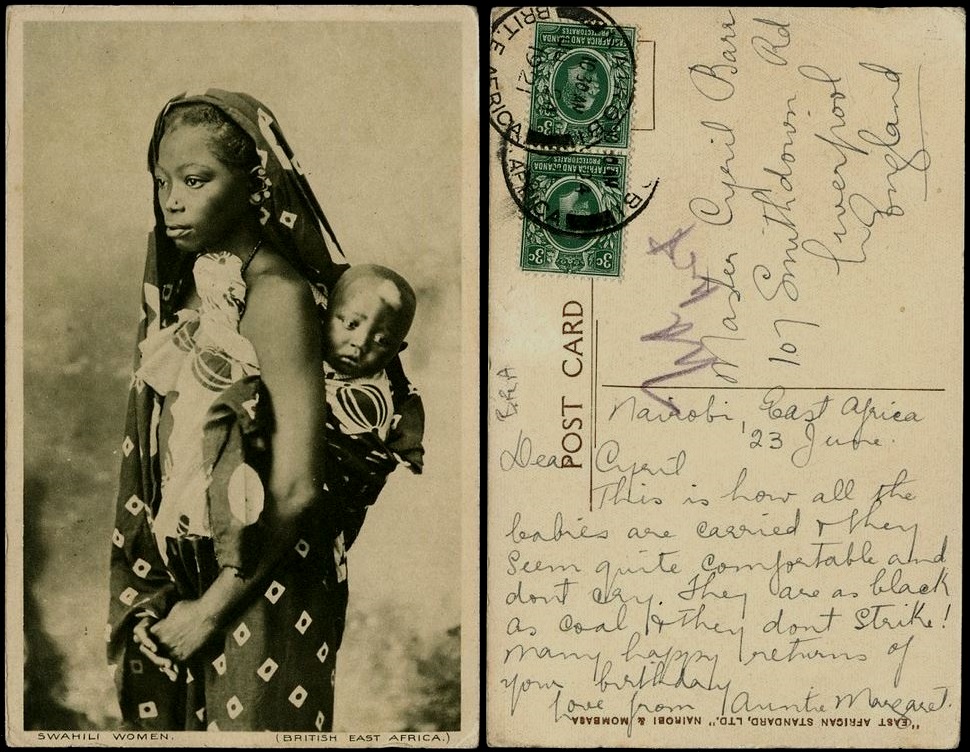 SWAHILI WOMEN. (BRITISH EAST AFRICA.)
EAST AFRICA AND UGANDA
PROTECTORATES
3c 3c
EAST AFRICA AND UGANDA
PROTECTORATES
3c 3c
BRIT. E. AFRICA
10.30 AM
1921
AFRICA
POST CARD
Master Cyril Barr
107 Smithdown Rd
Liverpool
England
Nairobi, East Africa
'23 June.
Dear Cyril
This is how all the
babies are carried & they
seem quite comfortable and
dont cry. They are as black
as coal & they dont Strike!
Many happy returns of
your birthday
love from Auntie Margaret.
"EAST AFRICAN STANDARD, LTD." NAIROBI & MOMBASA